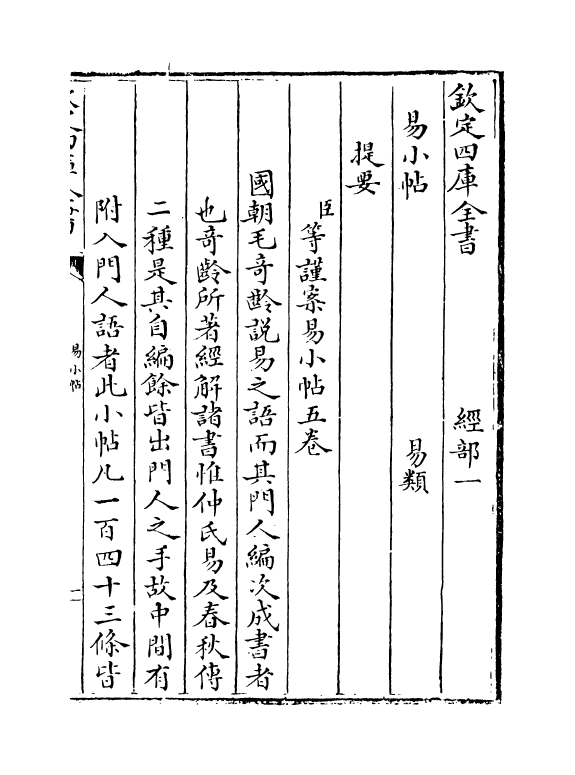 欽定四庫全書　經部一
易小帖　易類
提要
臣等謹案易小帖五巻
國朝毛奇齡説易之語而其門人編次成書者
也奇齡所著經解諸書惟仲氏易及春秋傳
二種是其自編餘皆出門人之手故中間有
附入門人語者此小帖凡一百四十三條皆
易小帖
一